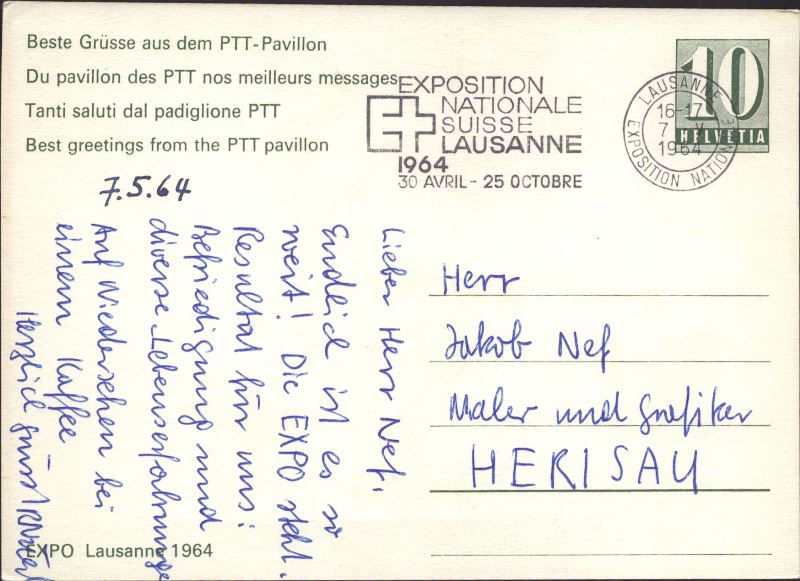 Beste Grüsse aus dem PTT-Pavillon
Du pavillon des PTT nos meilleurs messages
Tanti saluti dal padiglione PTT
Best greetings from the PTT pavillon
EXPOSITION
NATIONALE
SUISSE
LAUSANNE
1964
30 AVRIL - 25 OCTOBRE
LAUSANNE
16-17
7 V
1964
EXPOSITION NATIONALE
10
HELVETIA
7.5.64
Lieber Herr Nef,
Endlich ist es so
weit! Die EXPO steht.
Resultat für uns:
Befriedigung und
diverse Lebenserfahrungen
Auf Wiedersehen bei
einem Kaffee
Herzlich grüsst
Herr
Jakob Nef
Maler und Grafiker
HERISAU
EXPO Lausanne 1964